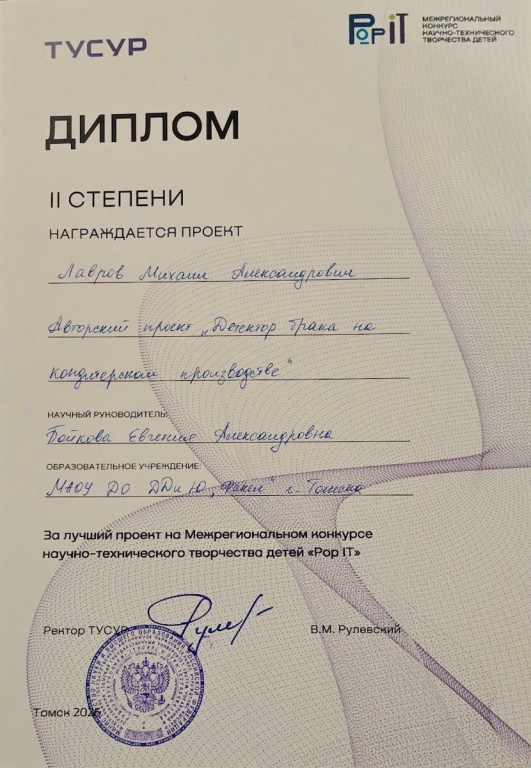 ТУСУР
POP IT
МЕЖРЕГИОНАЛЬНЫЙ
КОНКУРС
НАУЧНО-ТЕХНИЧЕСКОГО
ТВОРЧЕСТВА ДЕТЕЙ
ДИПЛОМ
II СТЕПЕНИ
НАГРАЖДАЕТСЯ ПРОЕКТ
Лавров Михаил Александрович
Авторский проект „Детектор брака на
кондитерском производстве“
НАУЧНЫЙ РУКОВОДИТЕЛЬ:
Бойкова Евгения Александровна
ОБРАЗОВАТЕЛЬНОЕ УЧРЕЖДЕНИЕ:
МАОУ ДО ДДиЮ „Факел“ г. Томска
За лучший проект на Межрегиональном конкурсе
научно-технического творчества детей «Pop IT»
Ректор ТУСУР
В.М. Рулевский
Томск